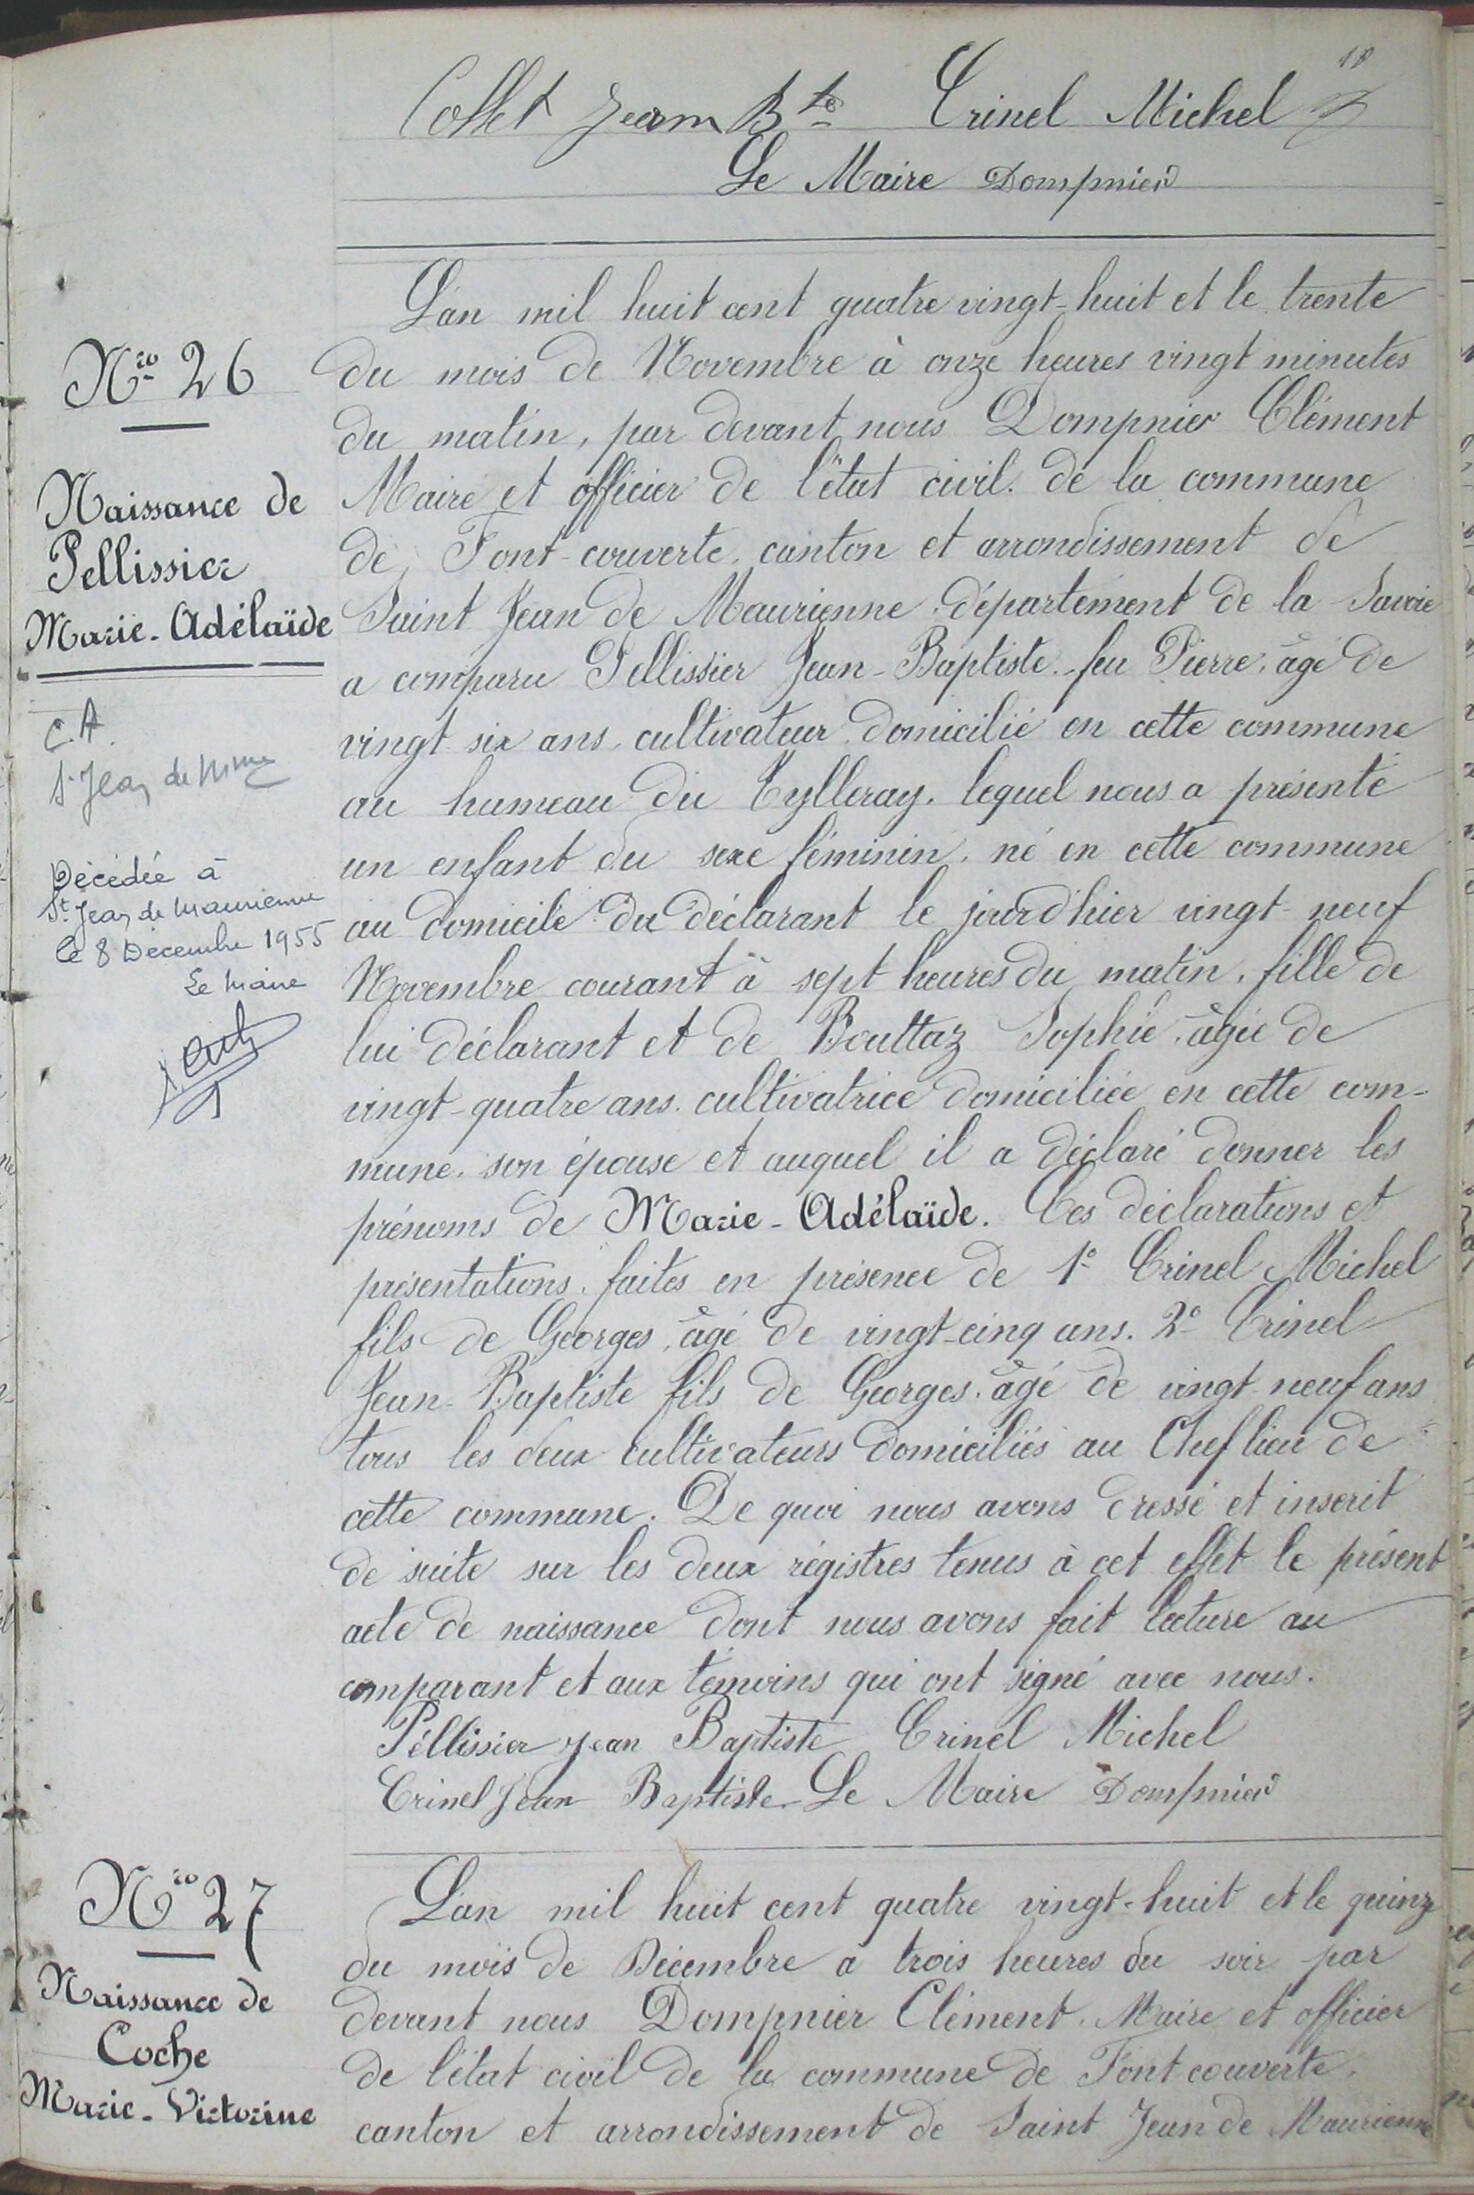 18
Collet Jean Bte Crinel Michel
Le Maire Dompnier
Nro 26
Naissance de
Pellissier
Marie-Adélaïde
C.A.
St Jean de Mne
Décédée à
St Jean de Maurienne
le 8 Décembre 1955
Le Maire
L'an mil huit cent quatre vingt-huit et le trente
du mois de Novembre à onze heures vingt minutes
du matin, par devant nous Dompnier Clément
Maire et officier de l'état civil de la commune
de Font-couverte, canton et arrondissement de
Saint Jean de Maurienne, département de la Savoie
a comparu Pellissier Jean-Baptiste, feu Pierre, âgé de
vingt six ans, cultivateur, domicilié en cette commune
au hameau du Tylleray, lequel nous a présenté
un enfant du sexe féminin, né en cette commune
au domicile du déclarant le jourd'hier vingt-neuf
Novembre courant à sept heures du matin, fille de
lui déclarant et de Bouttaz Sophie, âgée de
vingt-quatre ans, cultivatrice domiciliée en cette com-
mune, son épouse et auquel il a déclaré donner les
prénoms de Marie-Adélaïde. Ces déclarations et
présentations, faites en présence de 1° Crinel Michel
fils de Georges, âgé de vingt-cinq ans. 2° Crinel
Jean-Baptiste fils de Georges, âgé de vingt-neuf ans
tous les deux cultivateurs domiciliés au Chef lieu de
cette commune. De quoi nous avons dressé et inscrit
de suite sur les deux régistres tenus à cet effet le présent
acte de naissance dont nous avons fait lecture au
comparant et aux témoins qui ont signé avec nous.
Péllissier Jean Baptiste Crinel Michel
Crinel Jean Baptiste Le Maire Dompnier
Nro 27
Naissance de
Coche
Marie-Victorine
L'an mil huit cent quatre vingt-huit et le quinze
du mois de Décembre a trois heures du soir par
devant nous Dompnier Clément, Maire et officier
de l'état civil de la commune de Font-couverte,
canton et arrondissement de Saint Jean de Maurienne